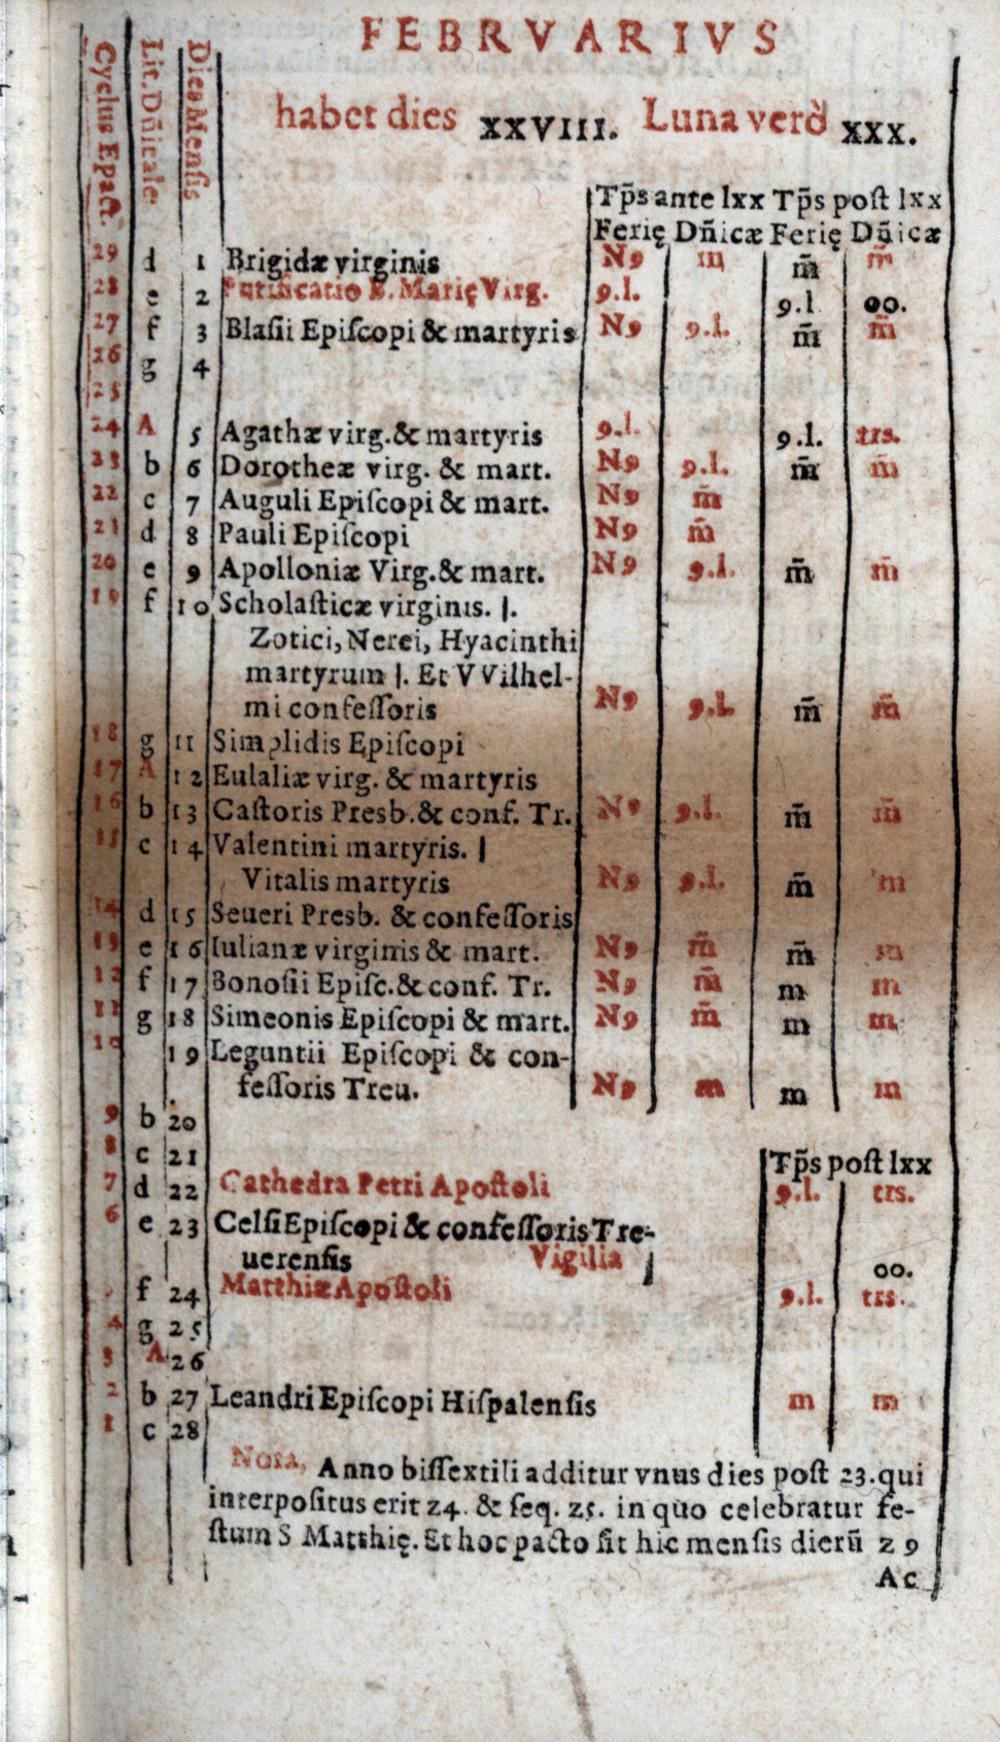 FEBRVARIVS
habet dies XXVIII. Luna verò XXX.
Cyclus Epact. Lit. Dñicale. Dies Mensis
Tp̃s ante lxx Tp̃s post lxx
Ferię Dñicæ Ferię Dñicæ
29 d 1 Brigidæ virginis N9 m m̃ m̃
28 e 2 Purificatio B. Marię Virg. 9.l. 9.l oo.
27 f 3 Blasii Episcopi & martyris N9 9.l. m̃ m̃
26 g 4
25
24 A 5 Agathæ virg. & martyris 9.l. 9.l. trs.
23 b 6 Dorotheæ virg. & mart. N9 9.l. m̃ m̃
22 c 7 Auguli Episcopi & mart. N9 m̃
21 d 8 Pauli Episcopi N9 m̃
20 e 9 Apolloniæ Virg. & mart. N9 9.l. m̃ m̃
19 f 10 Scholasticæ virginis. |.
Zotici, Nerei, Hyacinthi
martyrum |. Et VVilhel-
mi confessoris N9 9.l. m̃ m̃
18 g 11 Simplidis Episcopi
17 A 12 Eulaliæ virg. & martyris
16 b 13 Castoris Presb. & conf. Tr. N9 9.l. m̃ m̃
15 c 14 Valentini martyris. |
Vitalis martyris N9 9.l. m̃ m
14 d 15 Seueri Presb. & confessoris
13 e 16 Iulianæ virginis & mart. N9 m̃ m̃ m
12 f 17 Bonosii Episc. & conf. Tr. N9 m̃ m m
11 g 18 Simeonis Episcopi & mart. N9 m̃ m m
10 19 Leguntii Episcopi & con-
fessoris Treu. N9 m m m
9 b 20
8 c 21 Tp̃s post lxx
7 d 22 Cathedra Petri Apostoli 9.l. trs.
6 e 23 Celsi Episcopi & confessoris Tre-
uerensis Vigilia | oo.
f 24 Matthiæ Apostoli 9.l. trs.
4 g 25
3 A 26
2 b 27 Leandri Episcopi Hispalensis m m
1 c 28
Nota, Anno bissextili additur vnus dies post 23. qui
interpositus erit 24. & seq. 25. in quo celebratur fe-
stum S Matthię. Et hoc pacto fit hic mensis dierū 29
Ac